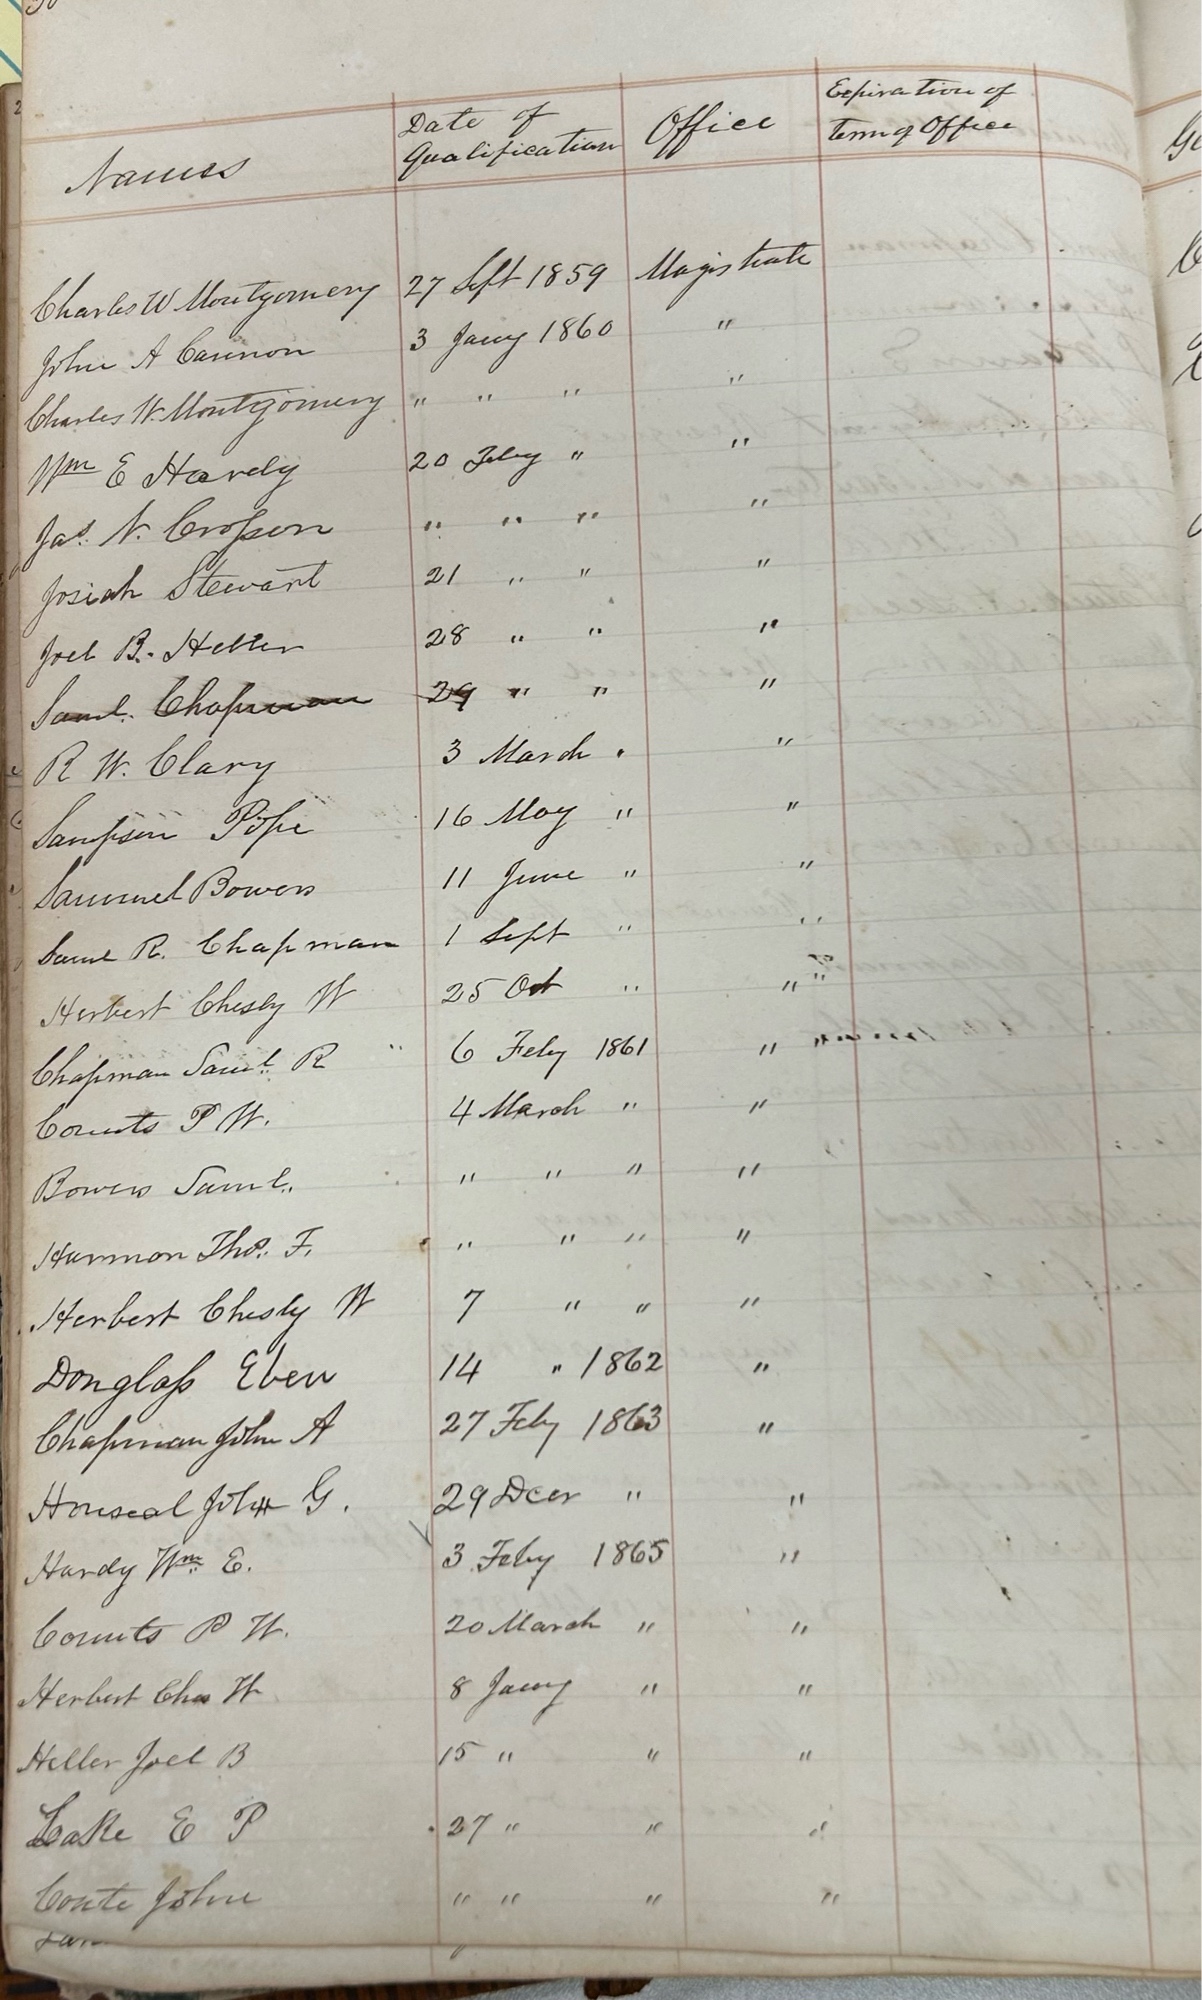 Names Date of Qualification Office Expiration of term of Office
Charles W Montgomery 27 Sept 1859 Magistrate
John A Cannon 3 Jany 1860 "
Charles W. Montgomery " " " "
Wm E Hardy 20 Feby " "
Jas. N. Crosson " " " "
Josiah Stewart 21 " " "
Joel B. Heller 28 " " "
Saml. Chapman 29 " " "
R W. Clary 3 March " "
Sampson Pope 16 May " "
Sammuel Bowers 11 June " "
Saml R. Chapman 1 Sept " "
Herbert Chesly W 25 Oct " "
Chapman Saml. R 6 Feby 1861 "
Counts P W. 4 March " "
Bowers Saml. " " " "
Harmon Thos. F. " " " "
Herbert Chesly W 7 " " "
Douglass Eben 14 " 1862 "
Chapman John A 27 Feby 1863 "
Houseal John G. 29 Decr " "
Hardy Wm. E. 3 Feby 1865 "
Counts P W. 20 March " "
Herbert Chs W 8 Jany " "
Heller Joel B 15 " " "
Lake E P 27 " " "
Coate John " " " "